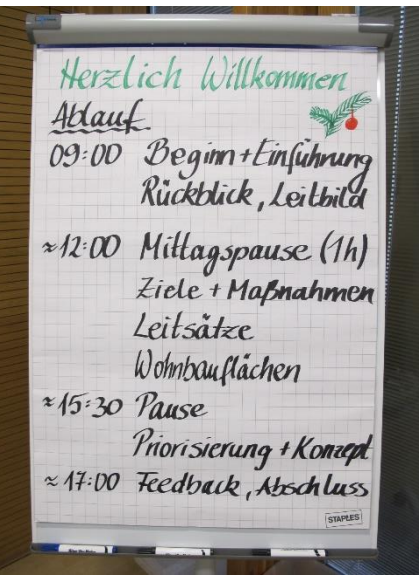 Herzlich Willkommen
Ablauf
09:00 Beginn + Einführung
Rückblick, Leitbild
≈12:00 Mittagspause (1h)
Ziele + Maßnahmen
Leitsätze
Wohnbauflächen
≈15:30 Pause
Priorisierung + Konzept
≈17:00 Feedback, Abschluss
STAPLES